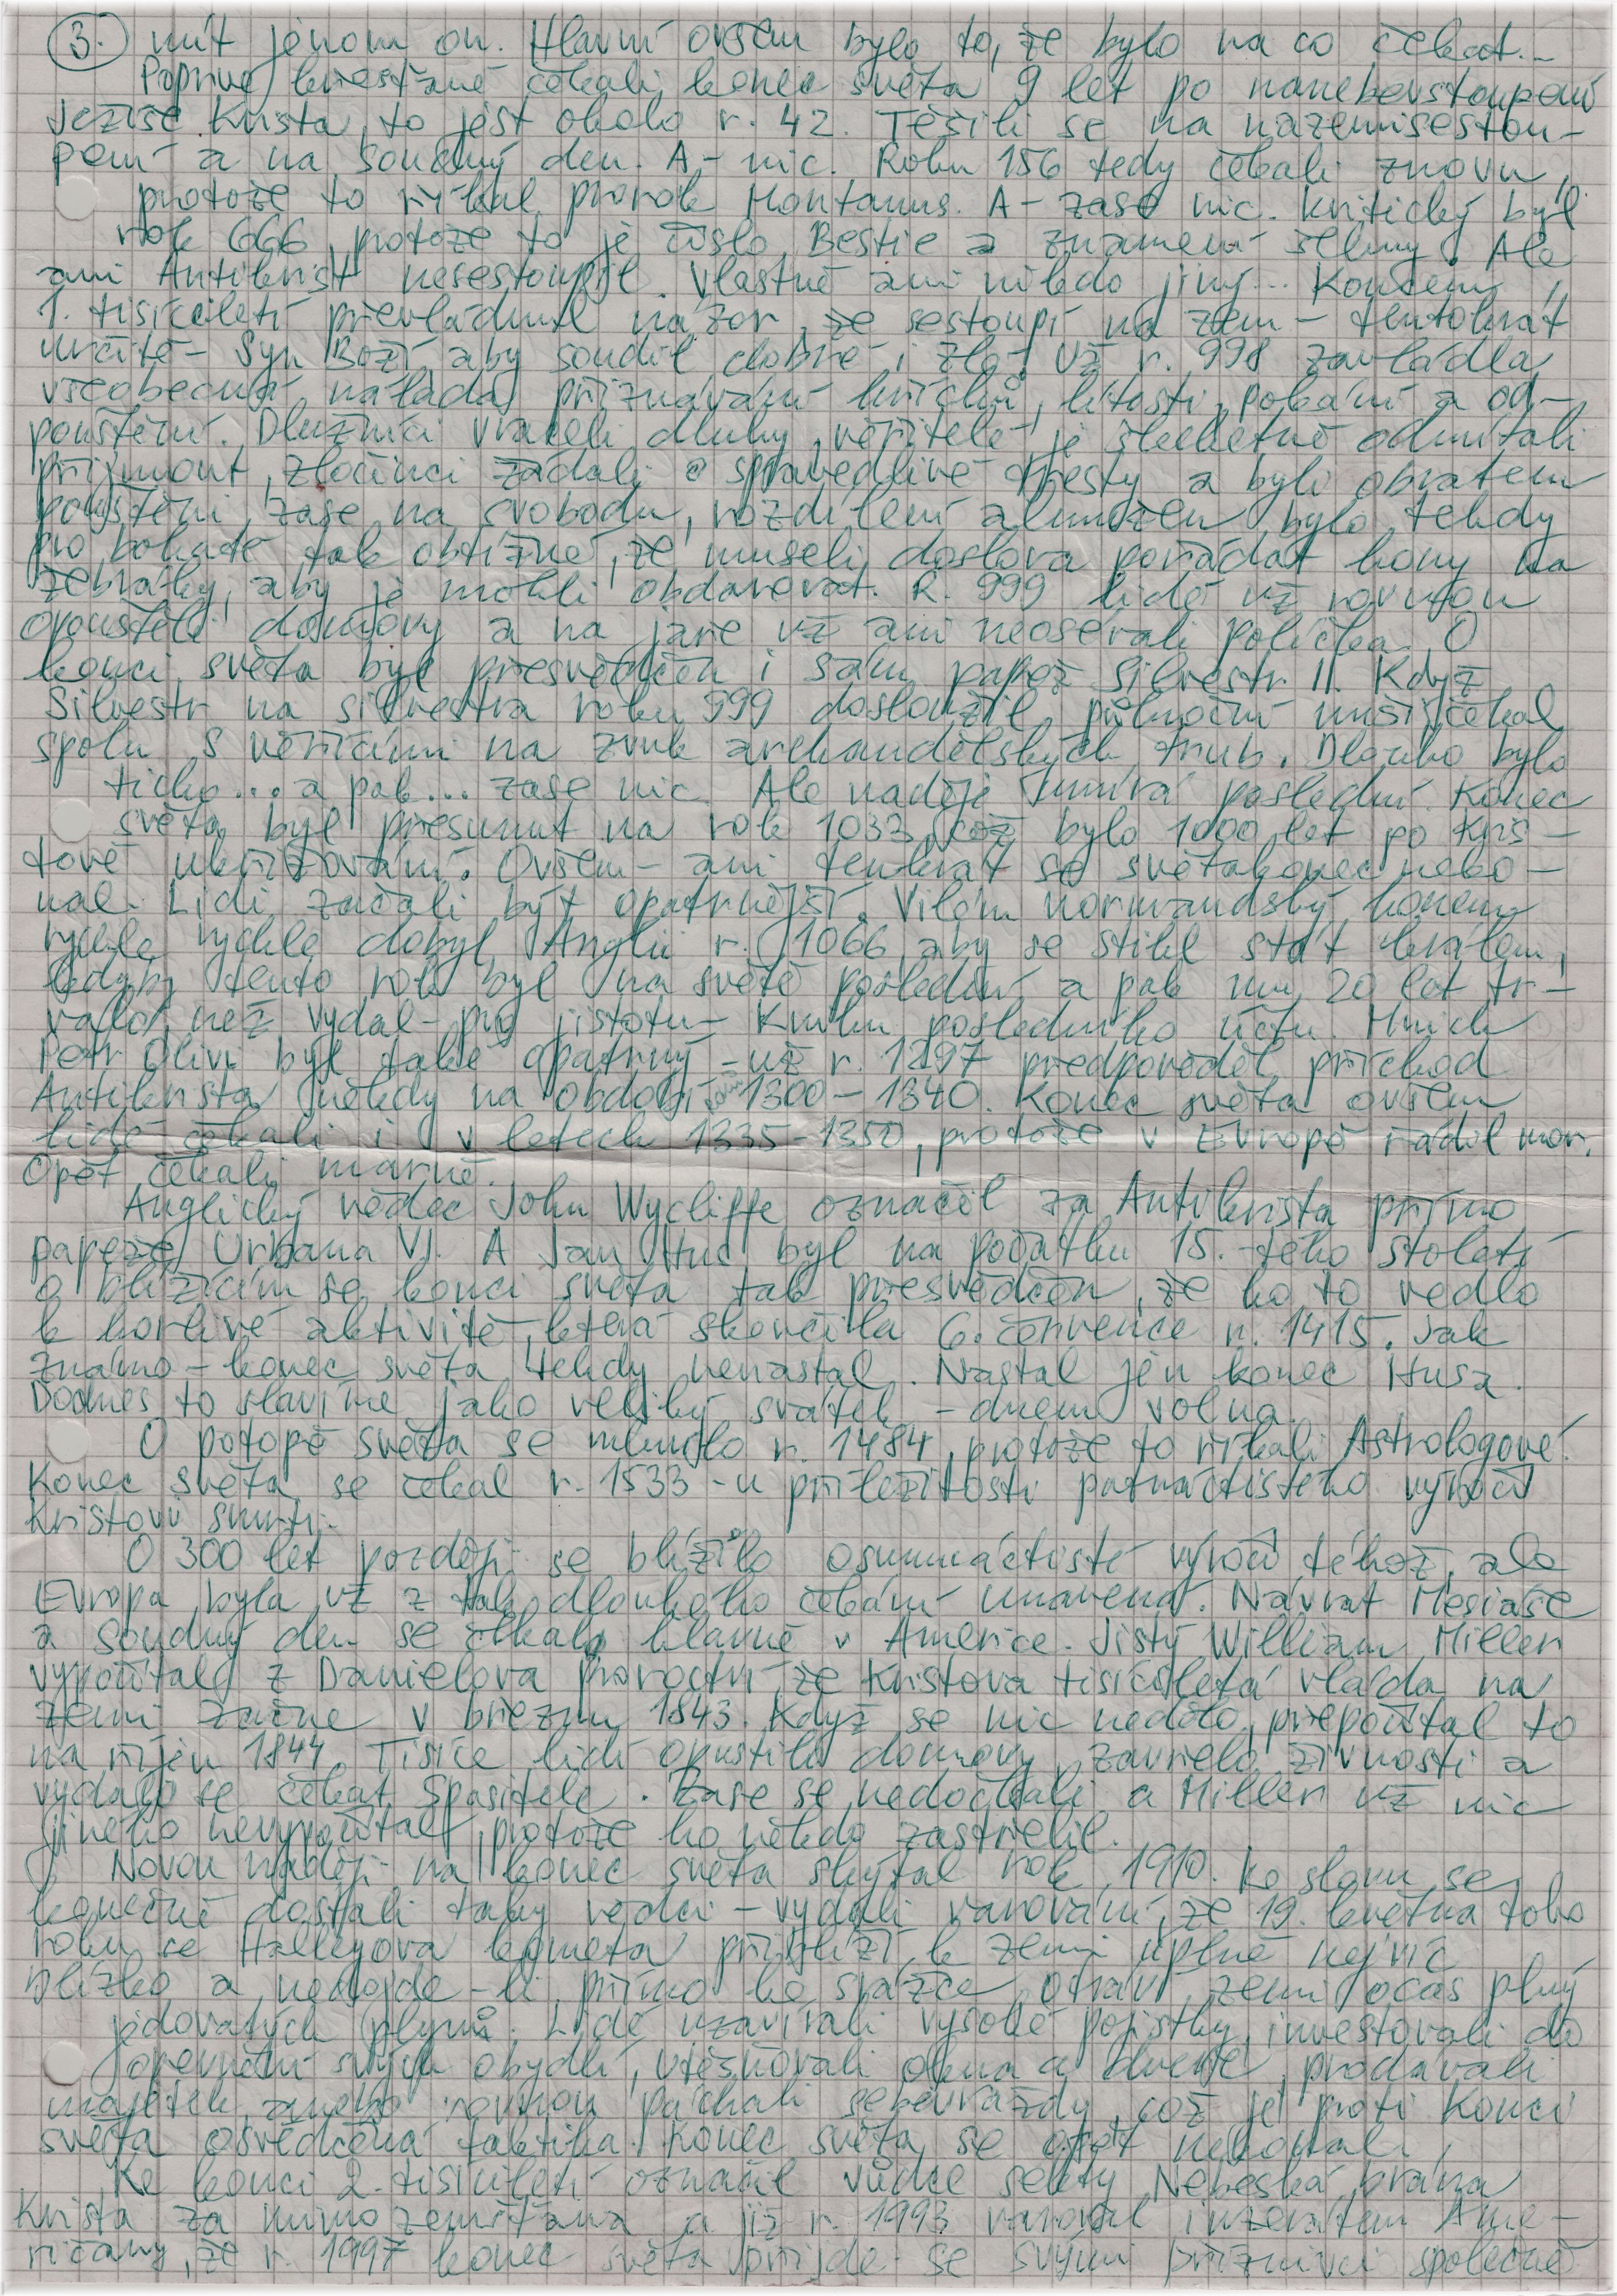 3. mít jenom on. Hlavní ovšem bylo to, že bylo na co čekat...
Poprvé křesťané čekali konec světa 9 let po nanebevstoupení
Ježíše Krista, to jest okolo r. 42. Těšili se na nazemisestou-
pení a na soudný den. A - nic. Roku 156 tedy čekali znovu,
protože to říkal prorok Montanus. A - zase nic. Kritický byl
rok 666, protože to je číslo Bestie a znamení šelmy. Ale
ani Antikrist nesestoupil. Vlastně ani nikdo jiný... Koncem
1. tisíciletí převládnul názor, že sestoupí na zem - tentokrát
určitě - Syn Boží, aby soudil dobré i zlé. Už r. 998 zavládla
všeobecná nálada přiznávání hříchů, lítosti, pokání a od-
pouštění. Dlužníci vraceli dluhy, věřitelé je šlechetně odmítali
přijmout, zločinci žádali o spravedlivé tresty a byli obratem
pouštěni zase na svobodu, rozdílení almužen bylo tehdy
pro boháče tak obtížné, že museli doslova pořádat hony na
žebráky, aby je mohli obdarovat. R. 999 lidé už rovnou
opouštěli domovy a na jaře už ani neosévali políčka. O
konci světa byl přesvědčen i sám papež Silvestr II. Když
Silvestr na silvestra roku 999 dosloužil půlnoční mši, čekal
spolu s věřícími na zvuk archandělských trub. Dlouho bylo
ticho... a pak... zase nic. Ale naděje umírá poslední. Konec
světa byl přesunut na rok 1033, což bylo 1000 let po Kris-
tově ukřižování. Ovšem - ani tenkrát se světakonec neko-
nal. Lidi začali být opatrnější. Vilém normandský honem
rychle rychle dobyl Anglii r. 1066, aby se stihl stát králem,
kdyby tento rok byl na světě poslední a pak mu 20 let tr-
valo, než vydal - pro jistotu - Knihu posledního účtu. Mnich
Petr Olivi byl také opatrný - už r. 1297 předpověděl příchod
Antikrista někdy na období 1300 - 1340. Konec světa ovšem
lidé čekali i v letech 1335-1350, protože v Evropě řádil mor.
Opět čekali marně.
Anglický vědec John Wycliffe označil za Antikrista přímo
papeže Urbana VI. A Jan Hus byl na počátku 15.-tého století
o blížícím se konci světa tak přesvědčen, že ho to vedlo
k horlivé aktivitě, která skončila 6. července r. 1415. Jak
známo - konec světa tehdy nenastal. Nastal jen konec Husa.
Dodnes to slavíme jako veliký svátek - dnem volna.
O potopě světa se mluvilo r. 1484, protože to říkali Astrologové.
Konec světa se čekal r. 1533 - u příležitosti patnáctistého výročí
Kristovi smrti.
O 300 let později se blížilo osmnáctisté výročí téhož, ale
Evropa byla už z takodlouhého čekání unavená. Návrat Mesiáše
a soudný den se čekaly hlavně v Americe. Jistý William Miller
vypočítal z Danielova proroctví, že Kristova tisíciletá vláda na
zemi začne v březnu 1843. Když se nic nedělo, přepočítal to
na říjen 1844. Tisíce lidí opustilo domovy, zavřelo živnosti a
vydalo se čekat Spasitele. Zase se nedočkali a Miller už nic
jiného nevypočítal, protože ho někdo zastřelil.
Novou naději na konec světa skýtal rok 1910. Ke slovu se
konečně dostali taky vědci - vydali varování, že 19. května toho
roku se Halleyova kometa přiblíží k zemi úplně nejvíc
blízko a nedojde-li přímo ke srážce, otráví zemi ocas plný
jedovatých plynů. Lidé uzavírali vysoké pojistky, investovali do
opevnění svých obydlí, utěsňovali okna a dveře, prodávali
majetek, rovnou páchali sebevraždy, což je proti konci
světa osvědčená taktika. Konec světa se opět nekonal.
Ke konci 2. tisíciletí označil vůdce sekty Nebeská brána
Krista za mimozemšťana a již r. 1993 varoval inzerátem Ame-
ričany, že r. 1997 konec světa přijde - se svými příznivci společně